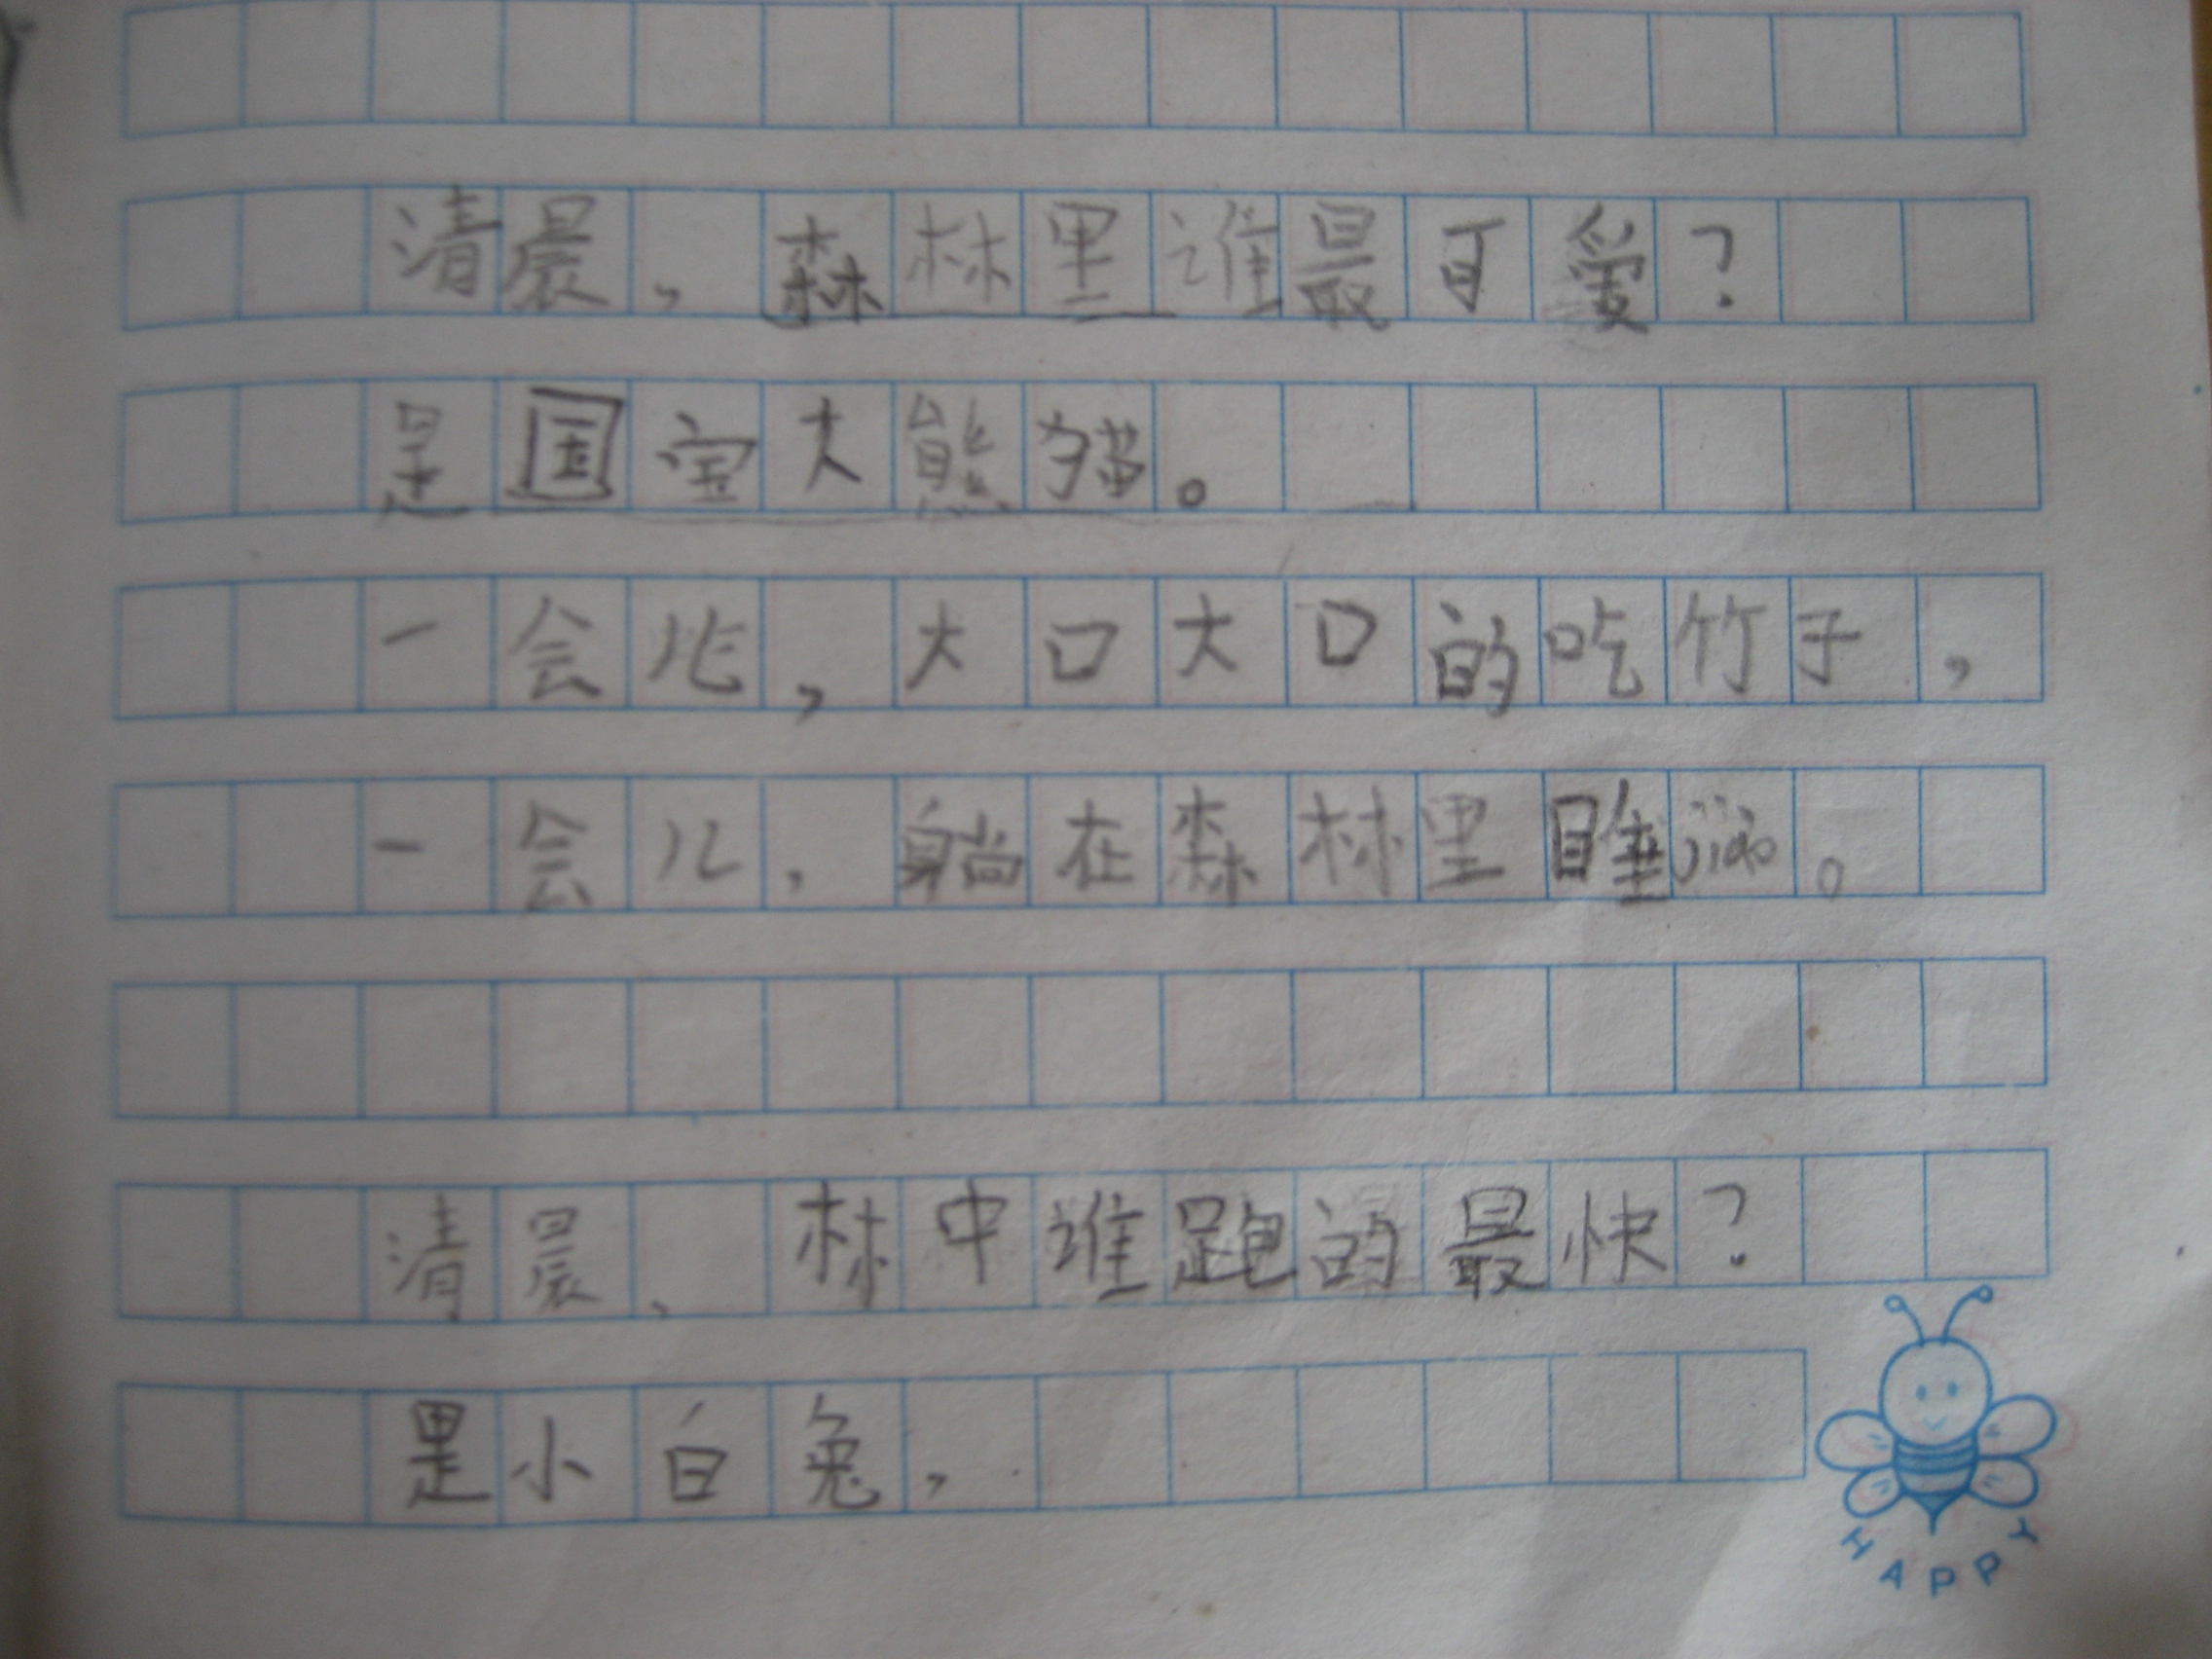 清晨，森林里谁最可爱？
是国宝大熊猫。
一会儿，大口大口的吃竹子，
一会儿，躺在森林里睡jiao。
清晨，林中谁跑的最快？
是小白兔，
HAPPY